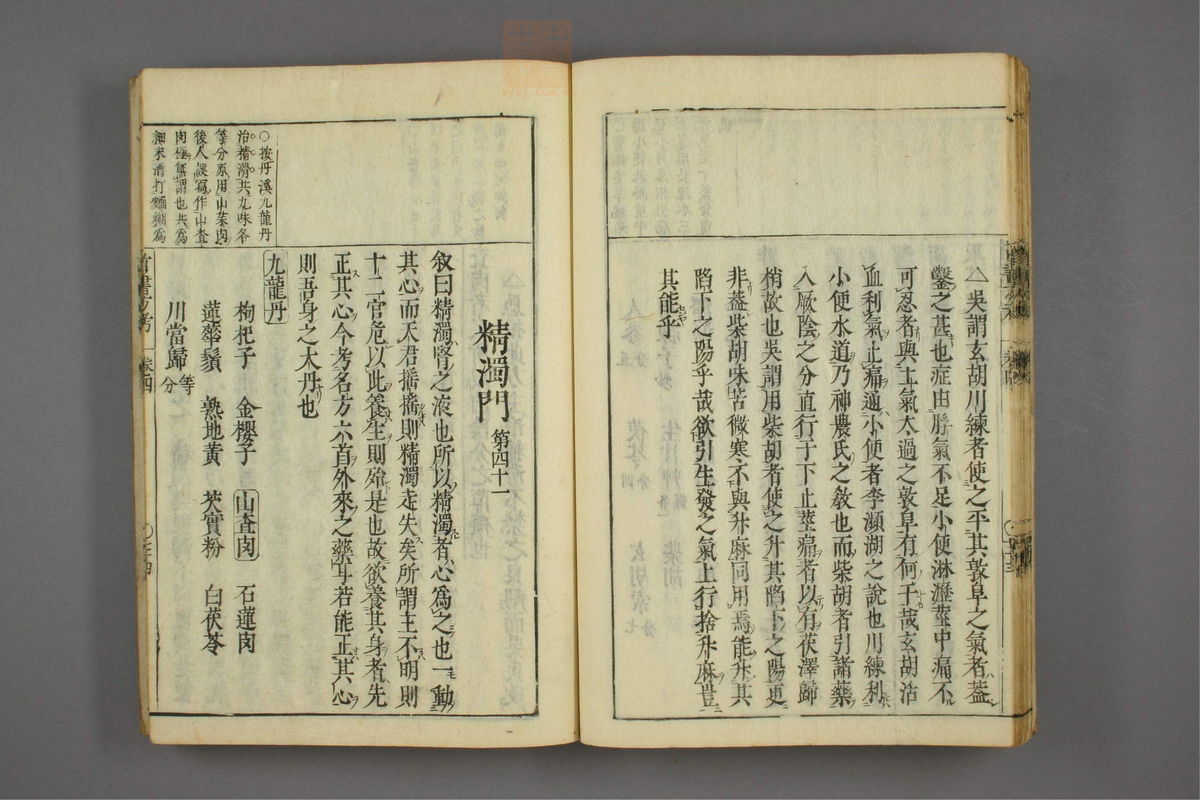 △吳謂玄胡川練者使之平其敦阜之氣者蓋
鑿之甚也症由脬氣不足小便淋瀝莖中痛不
可忍者與土氣太過之敦阜有何干哉玄胡活
血利氣止痛通小便者李瀕湖之說也川練利
小便水道乃神農氏之敎也而柴胡者引諸藥
入厥陰之分直行于下止莖痛者以有茯澤歸
梢故也吳謂用柴胡者使之升其陷下之陽更
非蓋柴胡味苦微寒不與升麻同用焉能升其
陷下之陽乎哉欲引生發之氣上行捨升麻豈
其能乎
精濁門 第四十一
敘曰精濁腎之液也所以精濁者心爲之也一動
其心而天君搖搖則精濁走失矣所謂主不明則
十二官危以此養生則殆是也故欲養其身者先
正其心今考名方六首外來之藥耳若能正其心
則吾身之大丹也
○按丹溪九龍丹
治精滑共九味各
等分原用山茱肉
後人誤寫作山査
肉極無謂也共爲
細末酒打麵糊爲
九龍丹
枸杞子 金櫻子 山査肉 石蓮肉
蓮華鬚 熟地黃 芡實粉 白茯苓
川當歸 等分
卷四